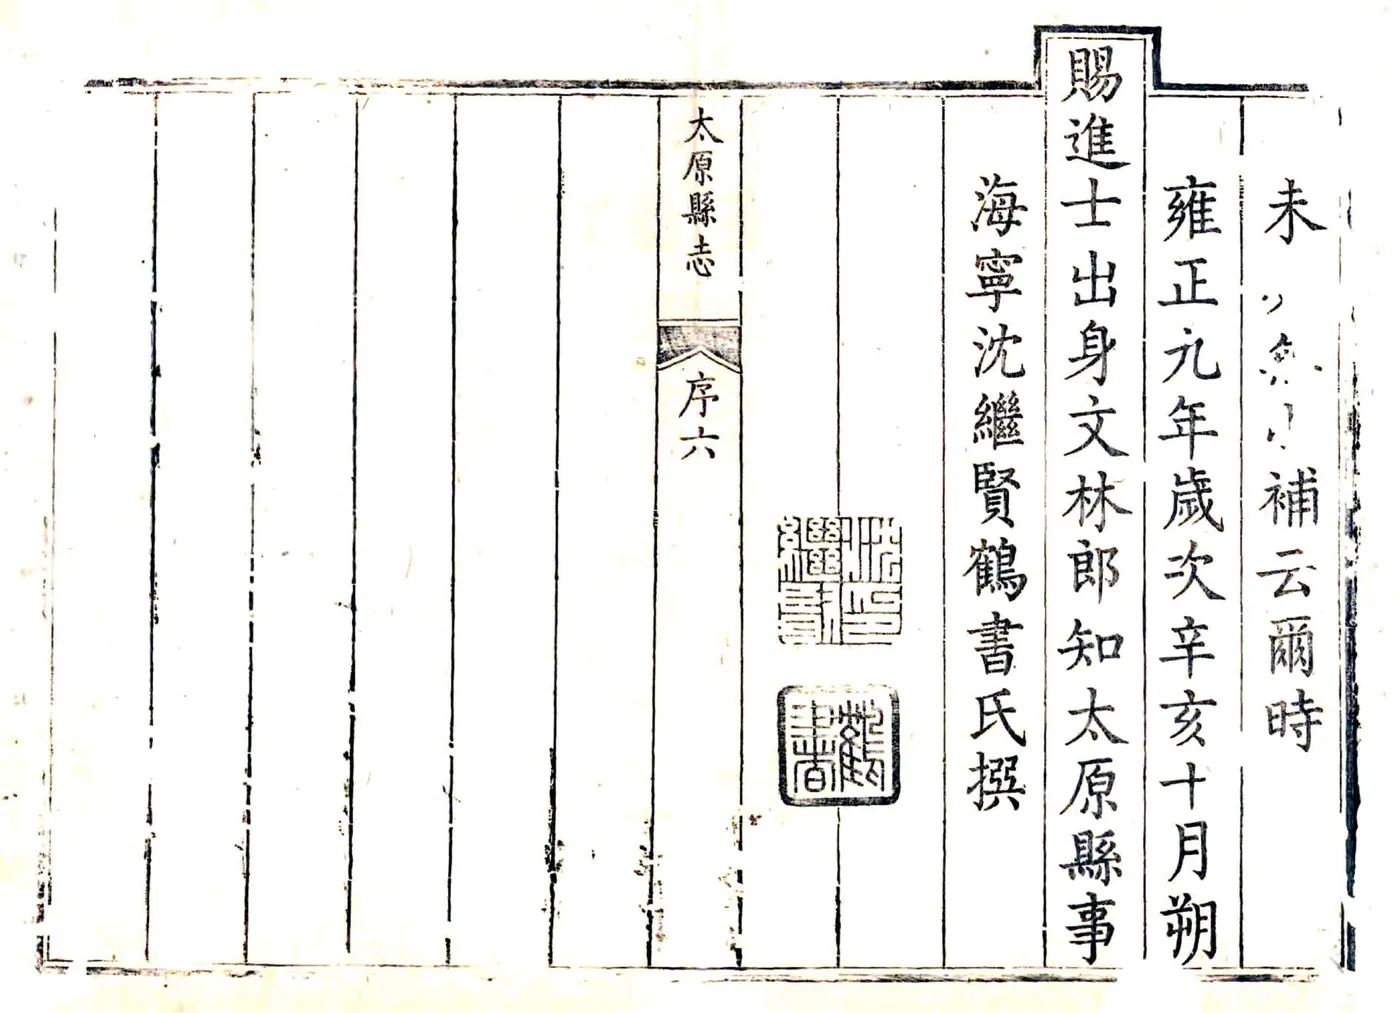 未 補云爾時
雍正元年歲次辛亥十月朔
賜進士出身文林郎知太原縣事
海寧沈繼賢鶴書氏撰
沈繼賢印
鶴書
太原縣志
序六